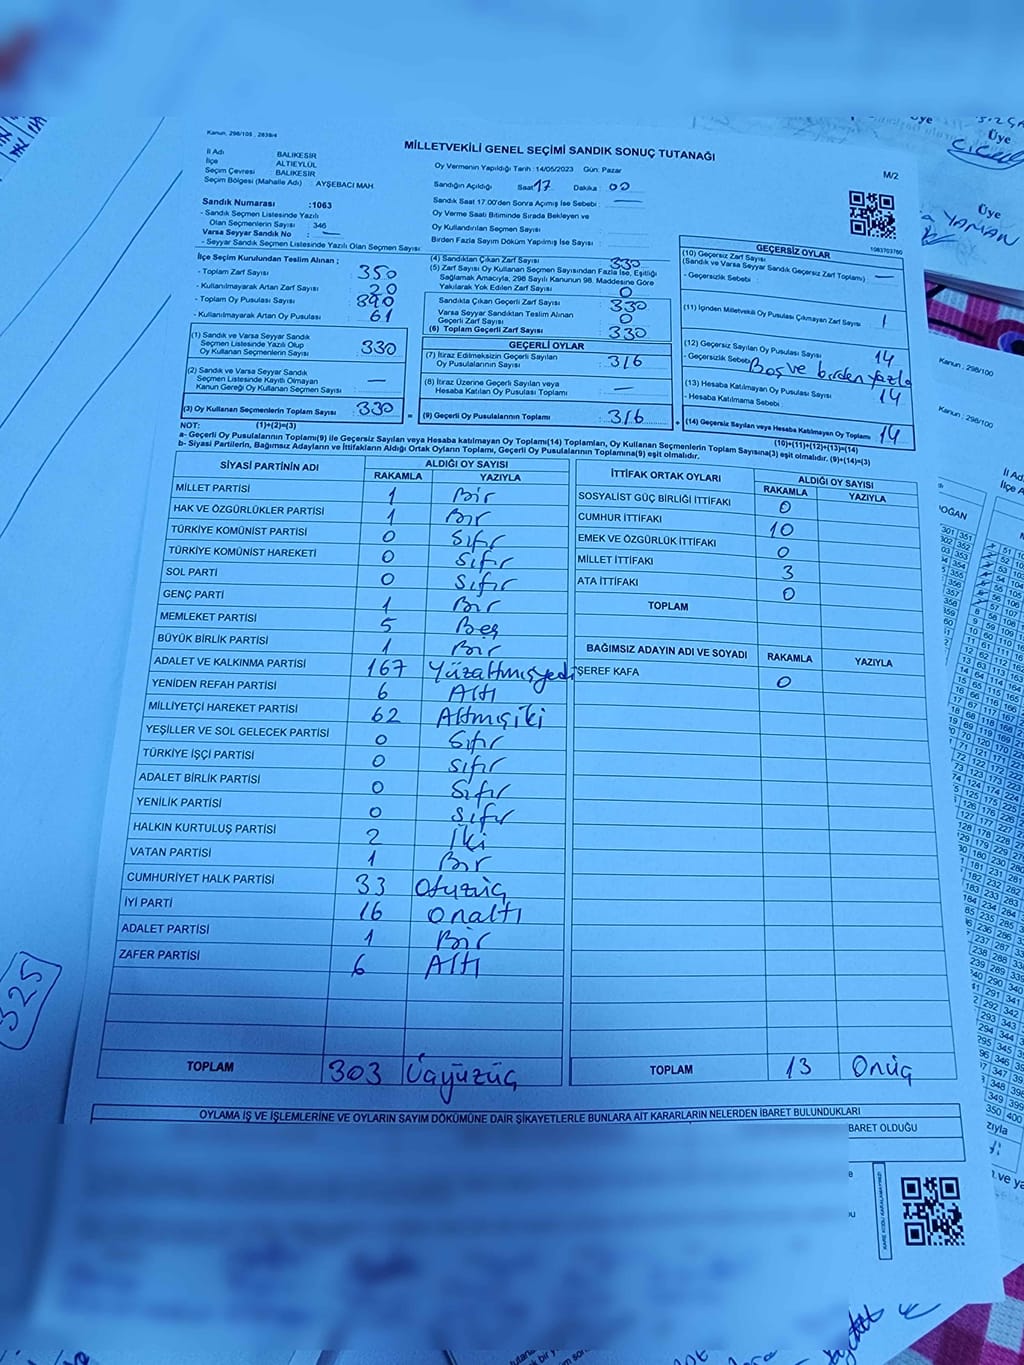 Kanun, 298/105 , 2839/4
MİLLETVEKİLİ GENEL SEÇİMİ SANDIK SONUÇ TUTANAĞI
M/2
İl Adı BALIKESİR
İlçe ALTIEYLÜL
Seçim Çevresi BALIKESİR
Seçim Bölgesi (Mahalle Adı) : AYŞEBACI MAH.
Oy Vermenin Yapıldığı Tarih : 14/05/2023 Gün: Pazar
Sandığın Açıldığı Saat 17 Dakika 00
Sandık Saat 17.00'den Sonra Açılmış İse Sebebi : —
Oy Verme Saati Bitiminde Sırada Bekleyen ve
Oy Kullandırılan Seçmen Sayısı :
Birden Fazla Sayım Döküm Yapılmış İse Sayısı :
Sandık Numarası :1063
- Sandık Seçmen Listesinde Yazılı
Olan Seçmenlerin Sayısı : 346
Varsa Seyyar Sandık No : —
- Seyyar Sandık Seçmen Listesinde Yazılı Olan Seçmen Sayısı :
İlçe Seçim Kurulundan Teslim Alınan ;
- Toplam Zarf Sayısı : 350
- Kullanılmayarak Artan Zarf Sayısı : 20
- Toplam Oy Pusulası Sayısı : 890
- Kullanılmayarak Artan Oy Pusulası : 61
(1) Sandık ve Varsa Seyyar Sandık
Seçmen Listesinde Yazılı Olup
Oy Kullanan Seçmenlerin Sayısı : 330
(2) Sandık ve Varsa Seyyar Sandık
Seçmen Listesinde Kayıtlı Olmayan
Kanun Gereği Oy Kullanan Seçmen Sayısı : —
(3) Oy Kullanan Seçmenlerin Toplam Sayısı : 330
(1)+(2)=(3)
(4) Sandıktan Çıkan Zarf Sayısı : 330
(5) Zarf Sayısı Oy Kullanan Seçmen Sayısından Fazla İse, Eşitliği
Sağlamak Amacıyla, 298 Sayılı Kanunun 98. Maddesine Göre
Yakılarak Yok Edilen Zarf Sayısı : 0
Sandıkta Çıkan Geçerli Zarf Sayısı : 330
Varsa Seyyar Sandıktan Teslim Alınan
Geçerli Zarf Sayısı : 0
(6) Toplam Geçerli Zarf Sayısı : 330
GEÇERLİ OYLAR
(7) İtiraz Edilmeksizin Geçerli Sayılan
Oy Pusulalarının Sayısı : 316
(8) İtiraz Üzerine Geçerli Sayılan veya
Hesaba Katılan Oy Pusulası Toplamı : —
= (9) Geçerli Oy Pusulalarının Toplamı : 316
1063703760
GEÇERSİZ OYLAR
(10) Geçersiz Zarf Sayısı
(Sandık ve Varsa Seyyar Sandık Geçersiz Zarf Toplamı) : —
- Geçersizlik Sebebi :
(11) İçinden Milletvekili Oy Pusulası Çıkmayan Zarf Sayısı : 1
(12) Geçersiz Sayılan Oy Pusulası Sayısı : 14
- Geçersizlik Sebebi : Boş ve birden fazla
(13) Hesaba Katılmayan Oy Pusulası Sayısı : 14
- Hesaba Katılmama Sebebi :
+ (14) Geçersiz Sayılan veya Hesaba Katılmayan Oy Toplamı : 14
(10)+(11)+(12)+(13)=(14)
NOT:
a- Geçerli Oy Pusulalarının Toplamı(9) ile Geçersiz Sayılan veya Hesaba katılmayan Oy Toplamı(14) Toplamları, Oy Kullanan Seçmenlerin Toplam Sayısına(3) eşit olmalıdır. (9)+(14)=(3)
b- Siyasi Partilerin, Bağımsız Adayların ve İttifakların Aldığı Ortak Oyların Toplamı, Geçerli Oy Pusulalarının Toplamına(9) eşit olmalıdır.
SİYASİ PARTİNİN ADI ALDIĞI OY SAYISI
RAKAMLA YAZIYLA
MİLLET PARTİSİ 1 Bir
HAK VE ÖZGÜRLÜKLER PARTİSİ 1 Bir
TÜRKİYE KOMÜNİST PARTİSİ 0 Sıfır
TÜRKİYE KOMÜNİST HAREKETİ 0 Sıfır
SOL PARTİ 0 Sıfır
GENÇ PARTİ 1 Bir
MEMLEKET PARTİSİ 5 Beş
BÜYÜK BİRLİK PARTİSİ 1 Bir
ADALET VE KALKINMA PARTİSİ 167 Yüzaltmışyedi
YENİDEN REFAH PARTİSİ 6 Altı
MİLLİYETÇİ HAREKET PARTİSİ 62 Altmışiki
YEŞİLLER VE SOL GELECEK PARTİSİ 0 Sıfır
TÜRKİYE İŞÇİ PARTİSİ 0 Sıfır
ADALET BİRLİK PARTİSİ 0 Sıfır
YENİLİK PARTİSİ 0 Sıfır
HALKIN KURTULUŞ PARTİSİ 2 İki
VATAN PARTİSİ 1 Bir
CUMHURİYET HALK PARTİSİ 33 Otuzüç
İYİ PARTİ 16 Onaltı
ADALET PARTİSİ 1 Bir
ZAFER PARTİSİ 6 Altı
TOPLAM 303 Üçyüzüç
İTTİFAK ORTAK OYLARI ALDIĞI OY SAYISI
RAKAMLA YAZIYLA
SOSYALİST GÜÇ BİRLİĞİ İTTİFAKI 0
CUMHUR İTTİFAKI 10
EMEK VE ÖZGÜRLÜK İTTİFAKI 0
MİLLET İTTİFAKI 3
ATA İTTİFAKI 0
TOPLAM
BAĞIMSIZ ADAYIN ADI VE SOYADI RAKAMLA YAZIYLA
ŞEREF KAFA 0
TOPLAM 13 Onüç
OYLAMA İŞ VE İŞLEMLERİNE VE OYLARIN SAYIM DÖKÜMÜNE DAİR ŞİKAYETLERLE BUNLARA AİT KARARLARIN NELERDEN İBARET BULUNDUKLARI
BARET OLDUĞU
KARE KODU KARALAMAYINIZ!
325
Üye
Üye
Üye
YAMAN
Kanun : 298/100
Kanun : 298/100